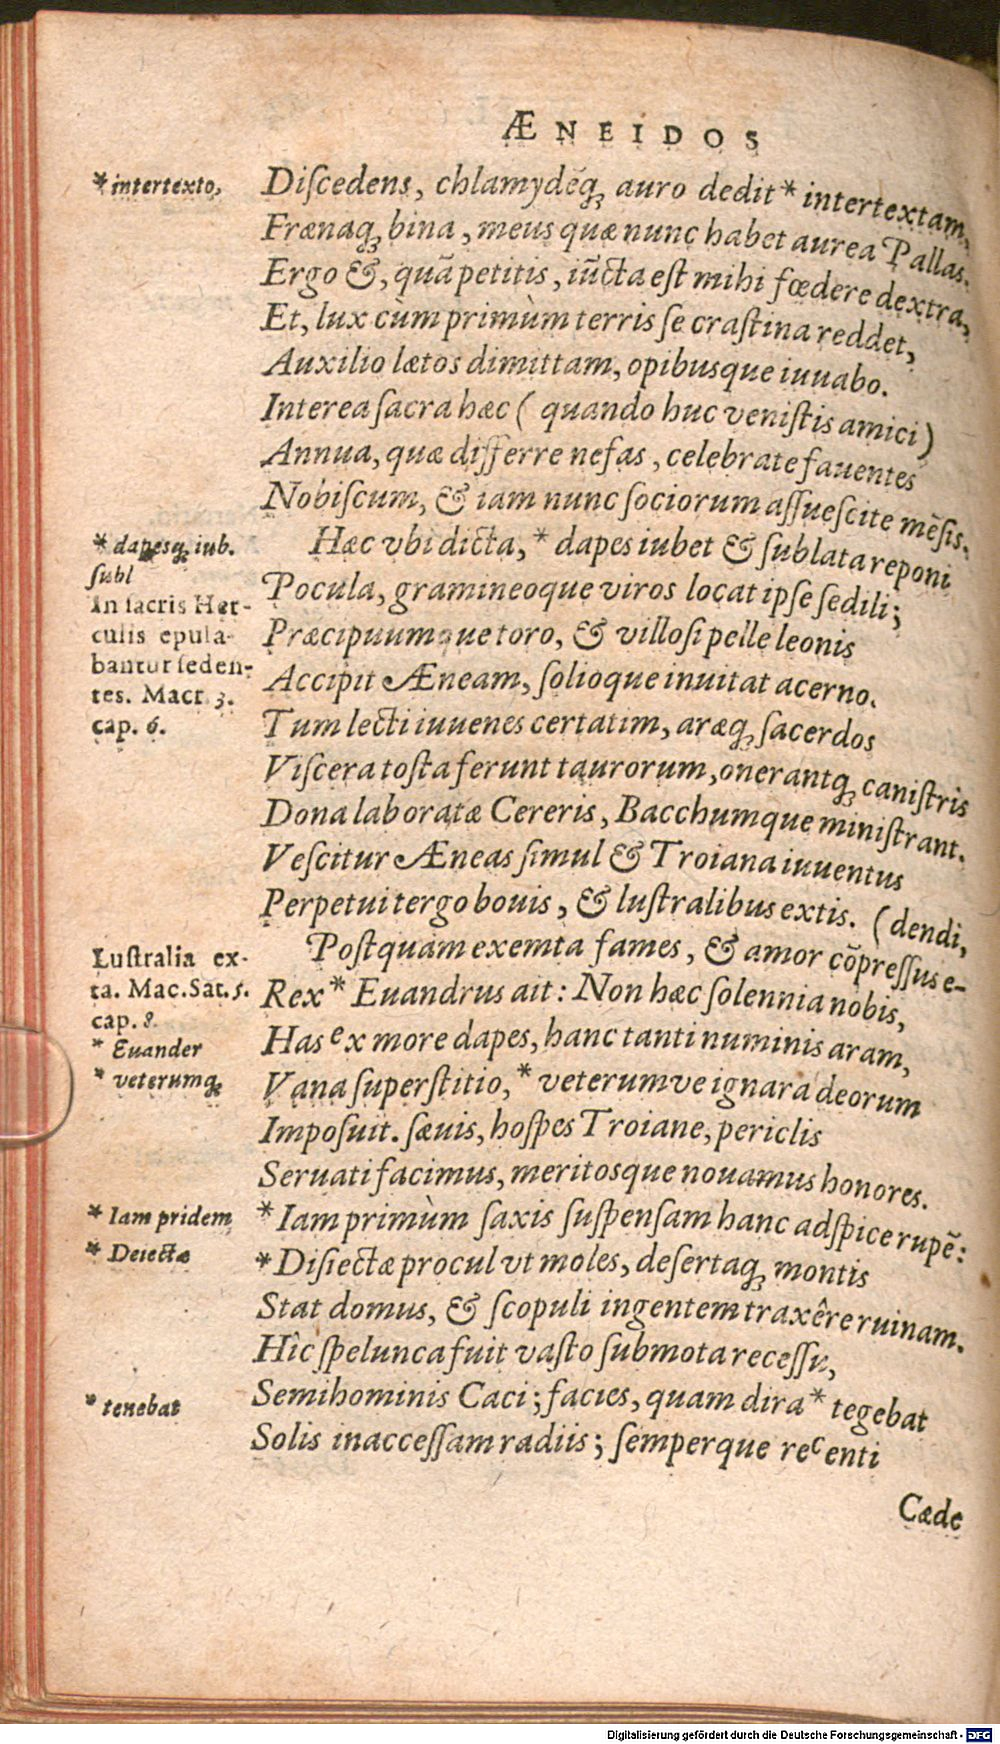 ÆNEIDOS
* intertexto,
Diſcedens, chlamydẽq; auro dedit * intertextam,
Frænaq; bina, meus quæ nunc habet aurea Pallas.
Ergo &, quã petitis, iũcta eſt mihi fœdere dextra,
Et, lux cùm primùm terris ſe craſtina reddet,
Auxilio lætos dimittam, opibusque iuuabo.
Interea ſacra hæc (quando huc veniſtis amici)
Annua, quæ differre nefas, celebrate fauentes
Nobiſcum, & iam nunc ſociorum aſſueſcite mẽſis.
* dapesq; iub.
ſubl
Hæc vbi dicta, * dapes iubet & ſublata reponi
Pocula, gramineoque viros locat ipſe ſedili;
In ſacris Her-
culis epula-
bantur ſeden-
tes. Macr. 3.
cap. 6.
Præcipuumque toro, & villoſi pelle leonis
Accipit Æneam, ſolioque inuitat acerno.
Tum lecti iuuenes certatim, aræq; ſacerdos
Viſcera toſta ferunt taurorum, onerantq; caniſtris
Dona laboratæ Cereris, Bacchumque miniſtrant.
Veſcitur Æneas ſimul & Troiana iuuentus
Perpetui tergo bouis, & luſtralibus extis. (dendi,
Luſtralia ex-
ta. Mac. Sat. 5.
cap. 8.
Poſtquam exemta fames, & amor cõpreſſus e-
Rex * Euandrus ait: Non hæc ſolennia nobis,
* Euander
Has ex more dapes, hanc tanti numinis aram,
* veterumq;
Vana ſuperſtitio, * veterumve ignara deorum
Impoſuit. ſæuis, hoſpes Troiane, periclis
Seruati facimus, meritosque nouamus honores.
* Iam pridem
* Iam primùm ſaxis ſuſpenſam hanc adſpice rupẽ:
* Deiectæ
* Diſiectæ procul vt moles, deſertaq; montis
Stat domus, & ſcopuli ingentem traxêre ruinam.
Hîc ſpelunca fuit vaſto ſubmota receſſu,
Semihominis Caci; facies, quam dira * tegebat
* tenebat
Solis inacceſſam radiis; ſemperque recenti
Cæde
Digitalisierung gefördert durch die Deutsche Forschungsgemeinschaft - DFG